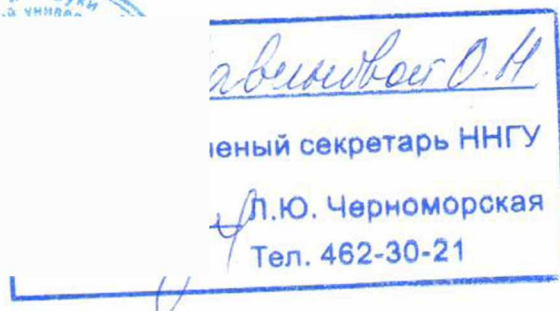 О.Н
ченый секретарь ННГУ
Л.Ю. Черноморская
Тел. 462-30-21